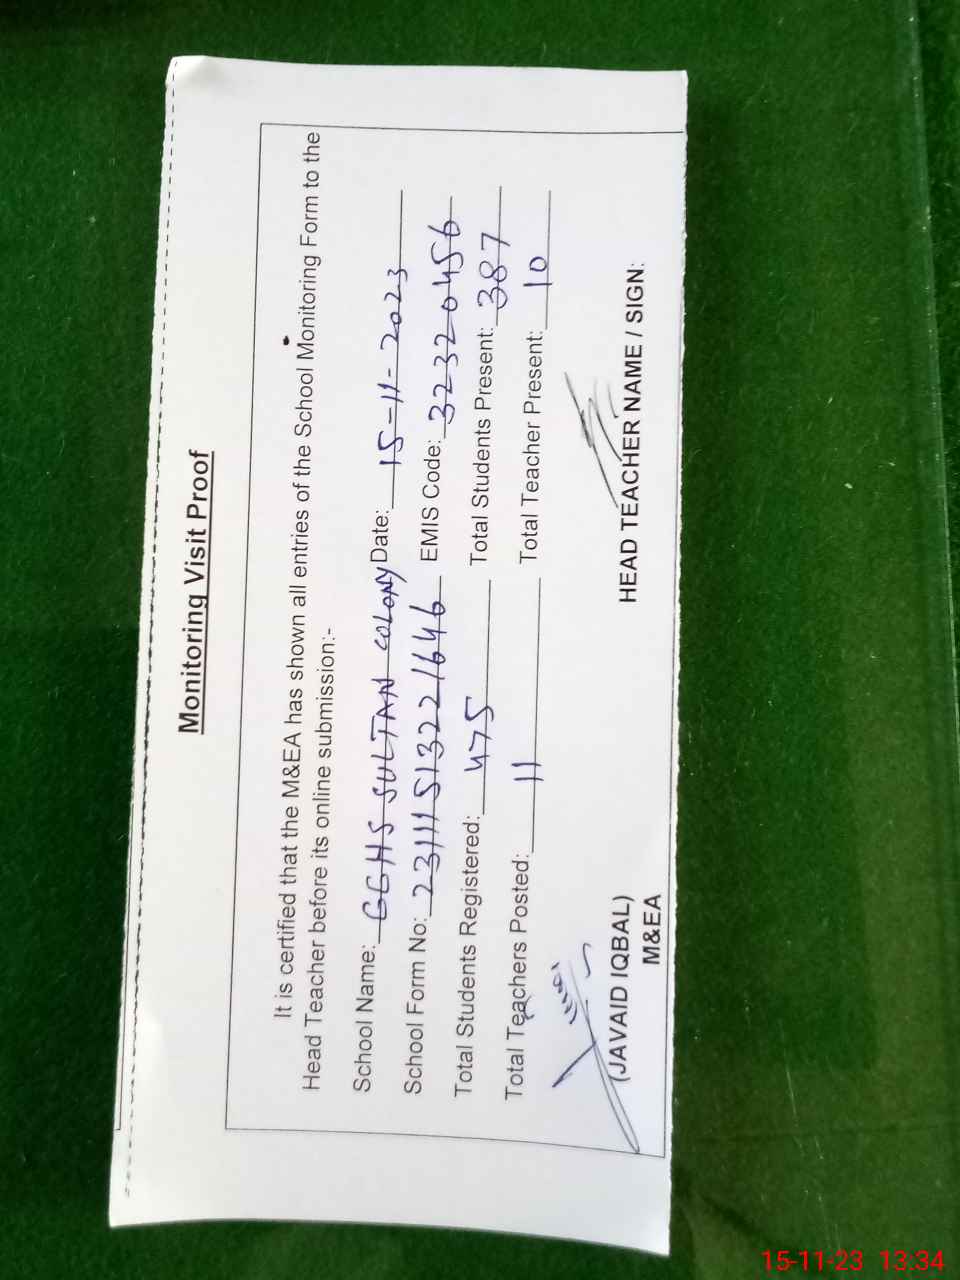 Monitoring Visit Proof
It is certified that the M&EA has shown all entries of the School Monitoring Form to the
Head Teacher before its online submission:-
School Name: GGHS SULTAN COLONY Date: 15-11-2023
School Form No: 23111513221646 EMIS Code: 32320456
Total Students Registered: 475 Total Students Present: 387
Total Teachers Posted: 11 Total Teacher Present: 10
(JAVAID IQBAL) HEAD TEACHER NAME / SIGN:
M&EA
15-11-23 13:34